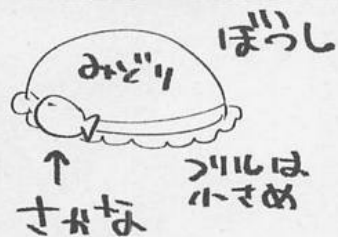 ぼうし
みどり
フリルは
小さめ
↑
さかな